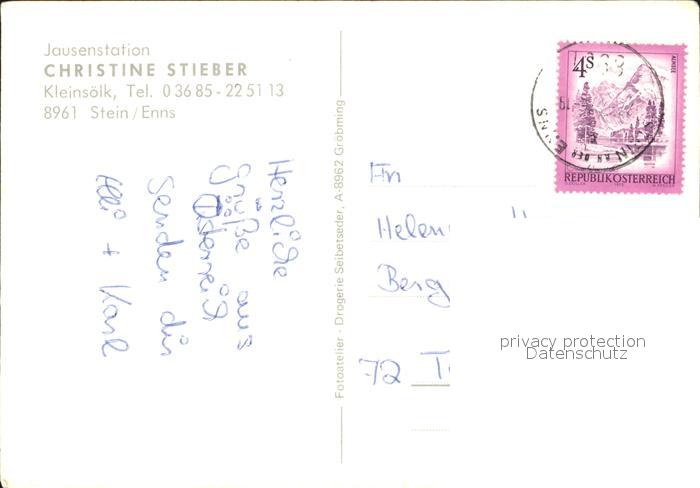 Jausenstation
CHRISTINE STIEBER
Kleinsölk, Tel. 0 36 85 - 22 51 13
8961 Stein/Enns
Herzliche
Grüße aus
Österreich
senden dir
+ Karl
Fotoatelier - Drogerie Seibetseder, A-8962 Gröbming
4S
ALMSEE
REPUBLIK ÖSTERREICH
AN DER ENNS
Helen
Berg
72 T
privacy protection
Datenschutz